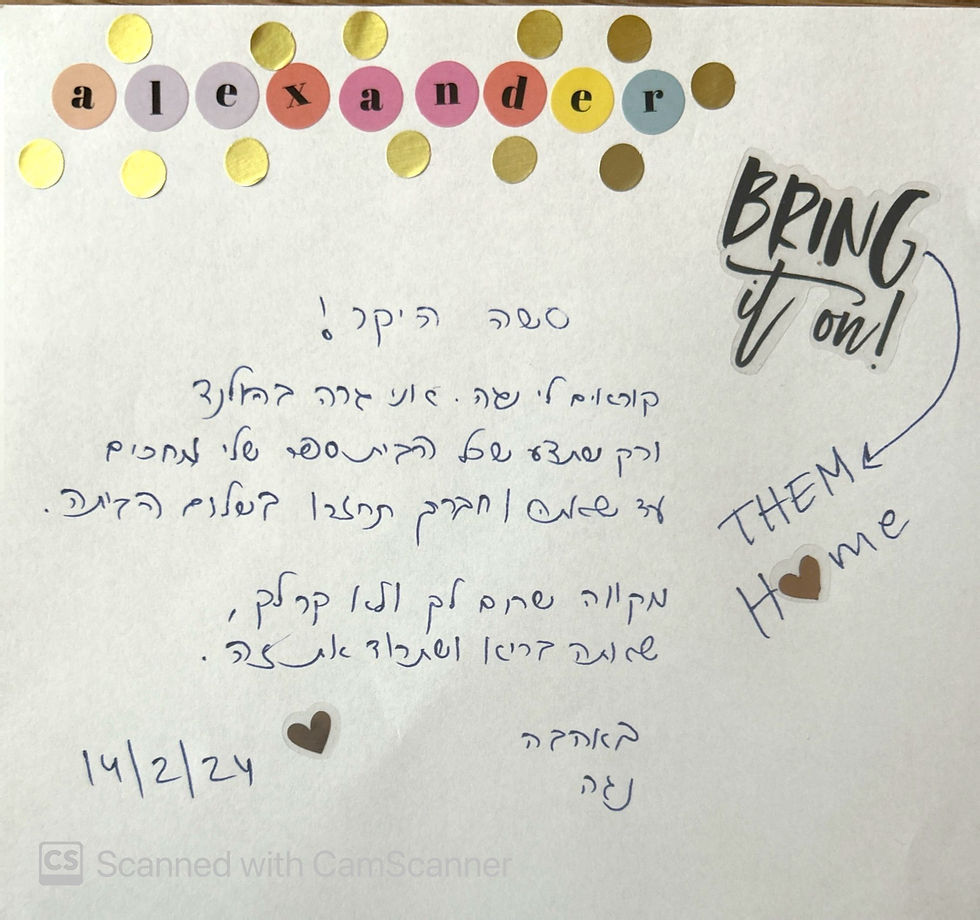 alexander
BRING
it on!
THEM
H me
סשה היקר!
קוראים לי נגה. אני גרה בהולנד
ורק שתדע שכל הבית ספר שלי מחכים
עד שאתם וחברך תחזרו בשלום הביתה.
מקווה שחום לך ולא קר לך,
שאתה בריא ושתרוד את זה.
באהבה
נגה
14/2/24
CS Scanned with CamScanner